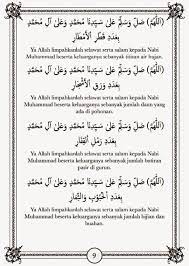 (اللَّهُمَّ) صَلِّ وَسَلِّمْ عَلَىٰ سَيِّدِنَا مُحَمَّدٍ وَعَلَىٰ آلِ مُحَمَّدٍ
بِعَدَدِ قَطْرِ الْأَمْطَارِ
Ya Allah limpahkanlah selawat serta salam kepada Nabi
Muhammad beserta keluarganya sebanyak titisan air hujan.
(اللَّهُمَّ) صَلِّ وَسَلِّمْ عَلَىٰ سَيِّدِنَا مُحَمَّدٍ وَعَلَىٰ آلِ مُحَمَّدٍ
بِعَدَدِ وَرَقِ الْأَشْجَارِ
Ya Allah limpahkanlah selawat serta salam kepada Nabi
Muhammad beserta keluarganya sebanyak jumlah daun yang
ada di pohonan.
(اللَّهُمَّ) صَلِّ وَسَلِّمْ عَلَىٰ سَيِّدِنَا مُحَمَّدٍ وَعَلَىٰ آلِ مُحَمَّدٍ
بِعَدَدِ رَمْلِ الْقِفَارِ
Ya Allah limpahkanlah selawat serta salam kepada Nabi
Muhammad beserta keluarganya sebanyak jumlah butiran
pasir di gurun.
(اللَّهُمَّ) صَلِّ وَسَلِّمْ عَلَىٰ سَيِّدِنَا مُحَمَّدٍ وَعَلَىٰ آلِ مُحَمَّدٍ
بِعَدَدِ الْحُبُوْبِ وَالثِّمَارِ
Ya Allah limpahkanlah selawat serta salam kepada Nabi
Muhammad beserta keluarganya sebanyak jumlah bijian dan
buahan.
9